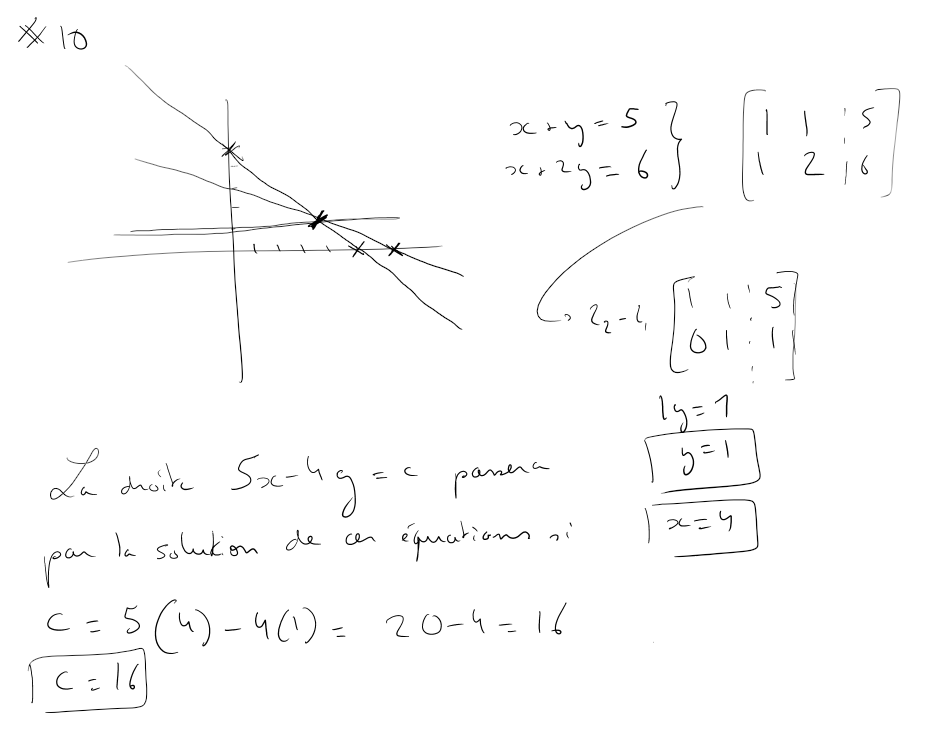 # 10
x + y = 5 } [1 1 ⋮ 5]
x + 2y = 6 } [1 2 ⋮ 6]
L₂ - L₁ [1 1 ⋮ 5]
[0 1 ⋮ 1]
1y = 1
y = 1
x = 4
La droite 5x - 4y = c passera
par la solution de ces équations si
c = 5(4) - 4(1) = 20 - 4 = 16
c = 16